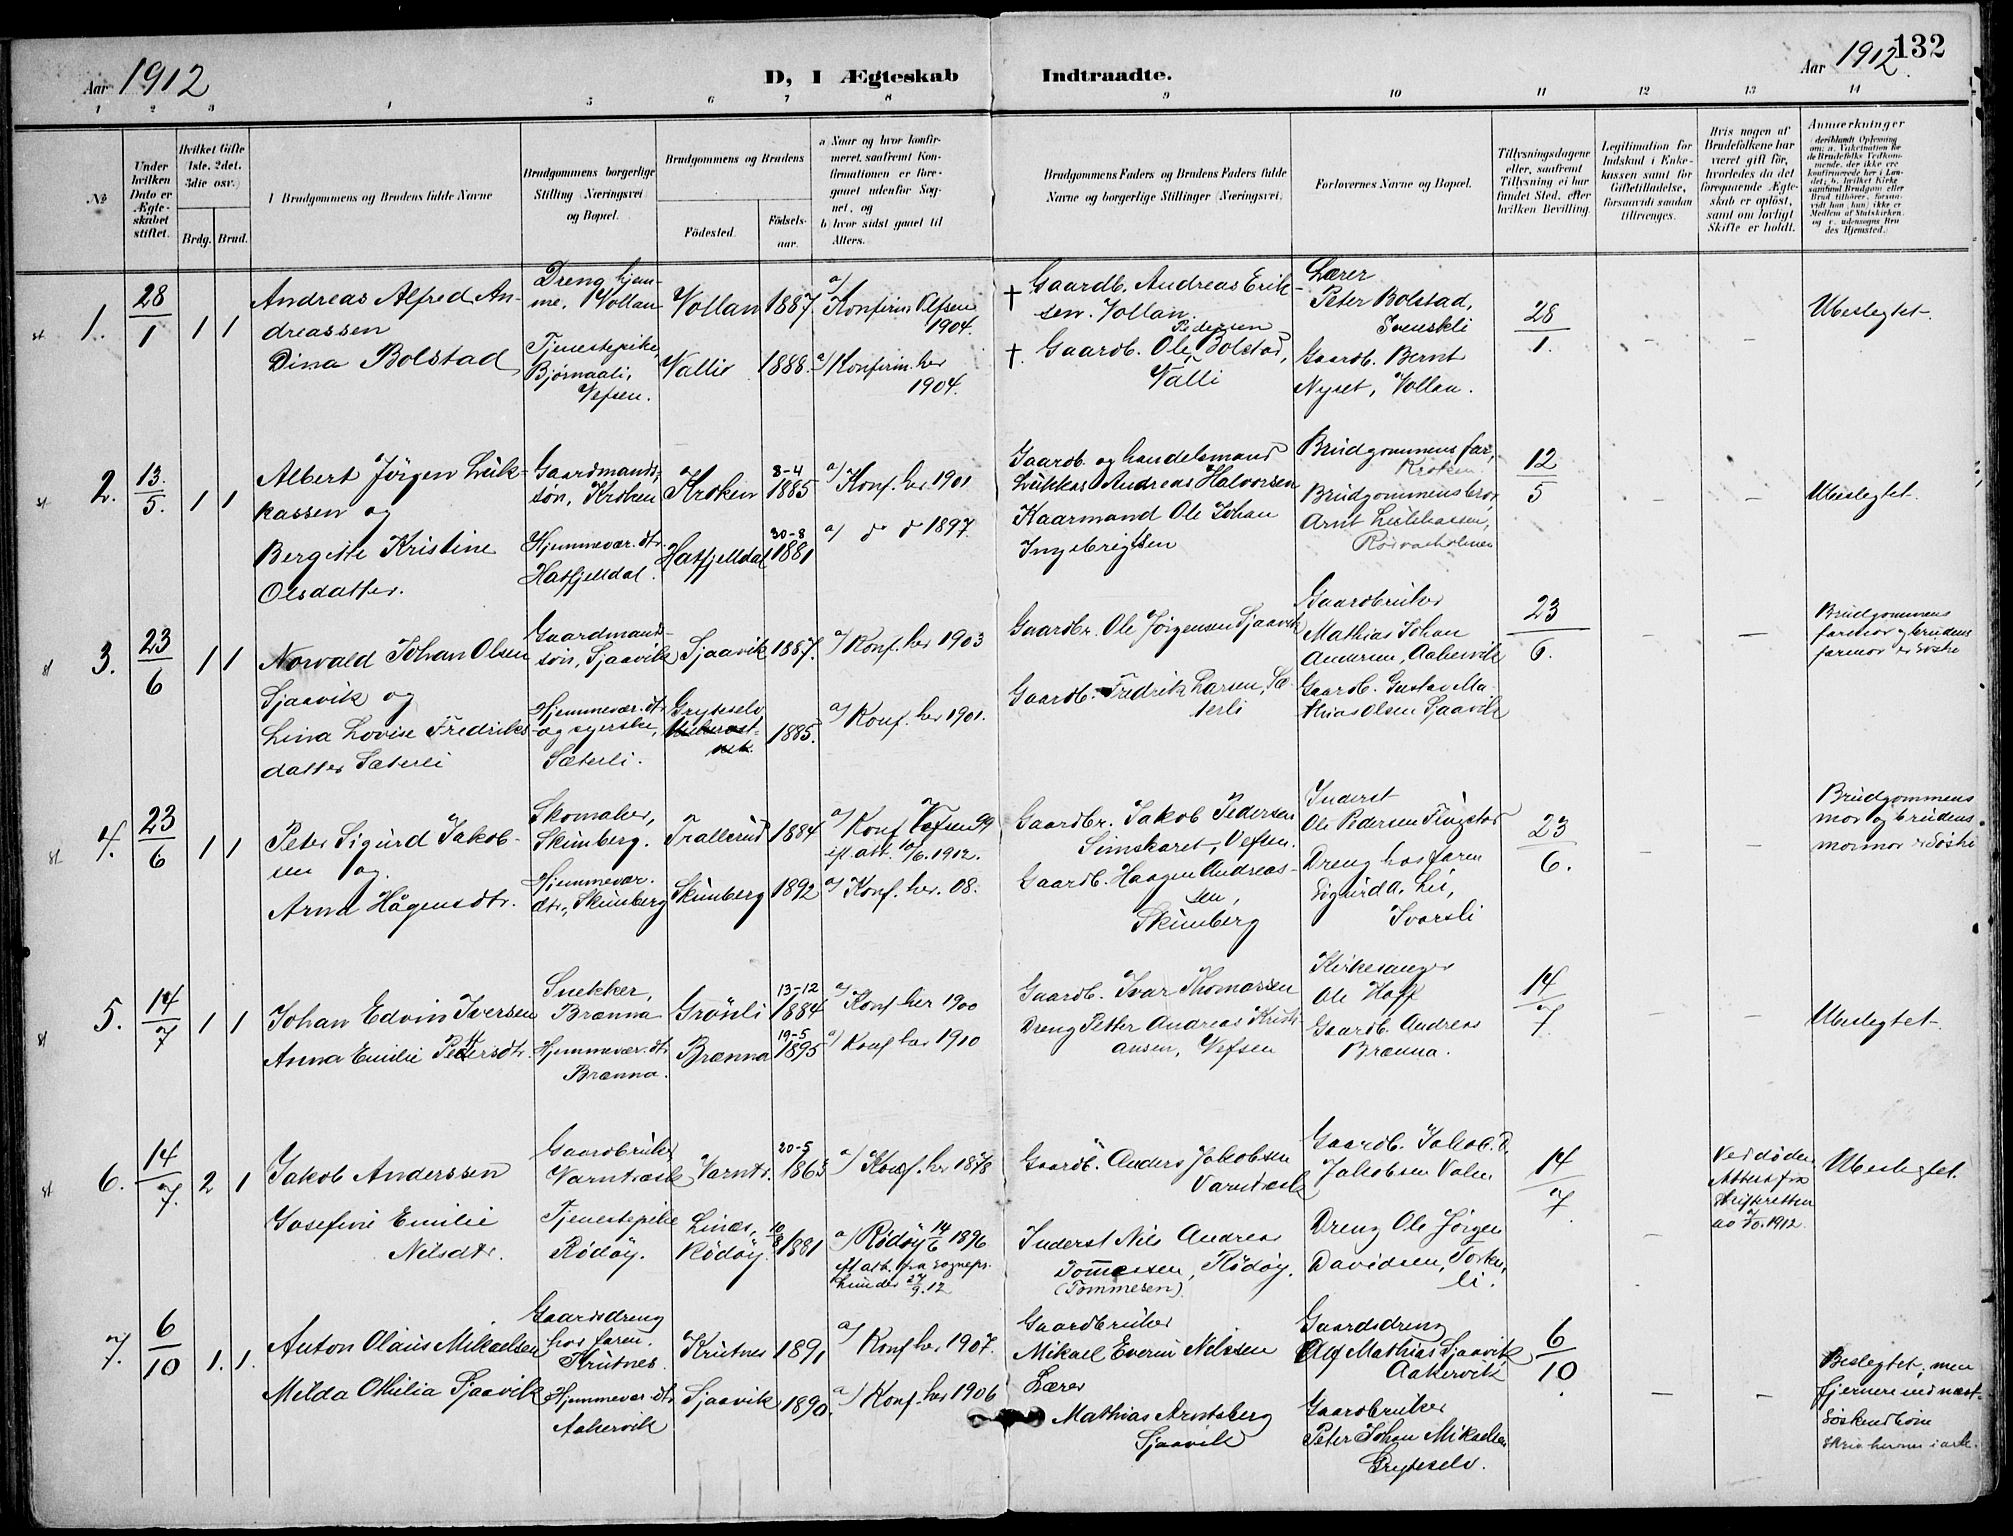 Aar 1912
D, I Ægteskab Indtraadte.
Aar 1912. 132
1 2 3 4 5 6 7 8 9 10 11 12 13 14
No
Under hvilken Dato er Ægteskabet stiftet.
Hvilket Gifte 1ste. 2det. 3die osv.)
Brdg. Brud.
Brudgommens og Brudens fulde Navne
Brudgommens borgerlige Stilling (Næringsvei) og Bopæl.
Brudgommens og Brudens
Fødested. Fødselsaar.
a Naar og hvor konfirmeret, saafremt Konfirmationen er foregaaet udenfor Sognet, og
b) hvor sidst gaaet til Alters.
Brudgommens Faders og Brudens Faders fulde Navne og borgerlige Stillinger (Næringsvei)
Forlovernes Navne og Bopæl.
Tillysningsdagene eller, saafremt Tillysning ei har fundet Sted, efter hvilken Bevilling.
Legitimation for Indskud i Enkekassen samt for Giftetilladelse, forsaavidt saadan tiltrænges.
Hvis nogen af Brudefolkene har været gift før, hvorledes da det foregaaende Ægteskab er opløst, samt om lovligt Skifte er holdt.
Anmærkninger
st 1. 28/1 1 1
Andreas Alfred An-
dreassen
Dina Bolstad
Dreng hjem-
me, Vollan
Tjenestepike,
Bjørnaali,
Vefsen.
Vollan 1887.
Vallii 1888.
a/ Konfirm. Olfsen
1904.
a/ Konfirm. her
1904.
† Gaardb. Andreas Erik-
sen. Vollan.
Pedersen
† Gaardb. Ole Bolstad,
Valli
Lærer
Peter Bolstad,
Svenskli
Gaardb. Bernt
Nyset, Vollan.
28/1.
Ubeslegtet.
st 2. 13./5. 1 1
Albert Jörgen Luk-
kassen og
Bergitte Kristine
Olsdatter.
Gaardmands-
søn, Kroken
Hjemmevær. dtr.
Hatfjelldal.
Kroken 8-4 1885
Hatfjelldal 30-8 1881
a/ Konf. her. 1901
a/ do do 1897.
Gaardb. og handelsmand
Lukkas Andreas Halvorsen
Kaarmand Ole Johan
Ingebrigtsen
Brudgommens far,
Kroken
Brudgommens bror
Arnt Lukkassen,
12/5
Ubeslegtet.
st 3. 23/6 1 1
Norvald Johan Olsen
Sjaavik og
Lina Lovise Fredriks-
datter Sæterli
Gaardmands-
søn, Sjaavik
Hjemmevær. dtr
og syerske,
Sæterli.
Sjaavik 1887.
Gryteselv
1885.
a/ Konf. her 1903
a/ Konf. her 1901.
Gaardbr. Ole Jörgensen Sjaavik
Gaardb. Fredrik Larsen, Sæ-
terli
Gaardbruker
Mathias Johan
Andersen, Aakervik
Gaardb. Gustav Ma-
thias Olsen Sjaavik
23/6.
Brudgommens
farmor og brudens
farmor er Søstre
st 4. 23/6 1 1
Peter Sigurd Jakob-
sen og
Arna Hågensdtr.
Skomaker,
Skinberg.
Hjemmevær.
dtr., Skinberg
Trallerud 1884
Skinberg 1892
a/ Konf. Vefsen 99
ifl. att. 10/6. 1912.
a/ Konf. her. 08.
Gaardbr. Jakob Pedersen
Simskaret, Vefsen.
Gaardb. Haagen Andreas-
sen,
Skinberg
Inderst
Ole Pedersen Tingstad
Dreng hos faren
Sigurd A. Lii,
Ivarsli
23/6.
Brudgommens
mor og brudens
mormor er Søstre
st 5. 14/7 1 1
Johan Edvin Iversen
Anna Emilie Pettersdtr.
Snekker,
Brænna
Hjemmevær. dtr
Brænna.
Grönli 13-12 1884
Brænna 19-5 1895
a/ Konf her 1900
a/ Konf her 1910
Gaardb. Ivar Thomassen
Dreng Petter Andreas Kristi-
ansen, Vefsen
Kirkesanger
Ole Hoff
Gaardb. Andreas
Brænna.
14/7
Ubeslegtet
st 6. 14/7. 2 1
Jakob Anderssen
Josefine Emilie
Nilsdtr.
Gaardbruker
Varntræsk
Tjenestepike
Rödöy.
Varntr. 20-5 1863
Rödöy. 10/8 1881
a/ Konf. her 1878
a/ Rödöy 14/6 1896
ifl. att. fra Sognepr.
Gaardb. Anders Jakobsen
Varntræsk
Inderst Nils Andreas
Tommesen, Rödöy.
(Tommesen).
Gaardb. Jakob A.
Jakobsen Valen
Dreng Ole Jörgen
Davidsen, Torken-
li.
14/7
Ved döden.
Attest fra
skifteretten
av 7/6. 1912.
Ubeslegtet.
7. 6/10 1. 1.
Anton Olaus Mikaelsen
Milda Othilia Sjaavik
Gaardsdreng
hos faren.
Krutnes.
Hjemmevær. dtr
Aakervik
Krutnes 1891
Sjaavik 1890.
a/ Konf her 1907.
a/ Konf. her 1906
Gaardbruker
Mikael Everin Nilssen
Lærer
Mathias Arntsberg
Sjaavik
Gaardsdreng
Alf Mathias Sjaavik
Aakervik
Gaardbruker
Peter Johan Mikaelsen
Gryteselv.
6/10
Beslegtet, men
fjernere end næst-
söskendbörn